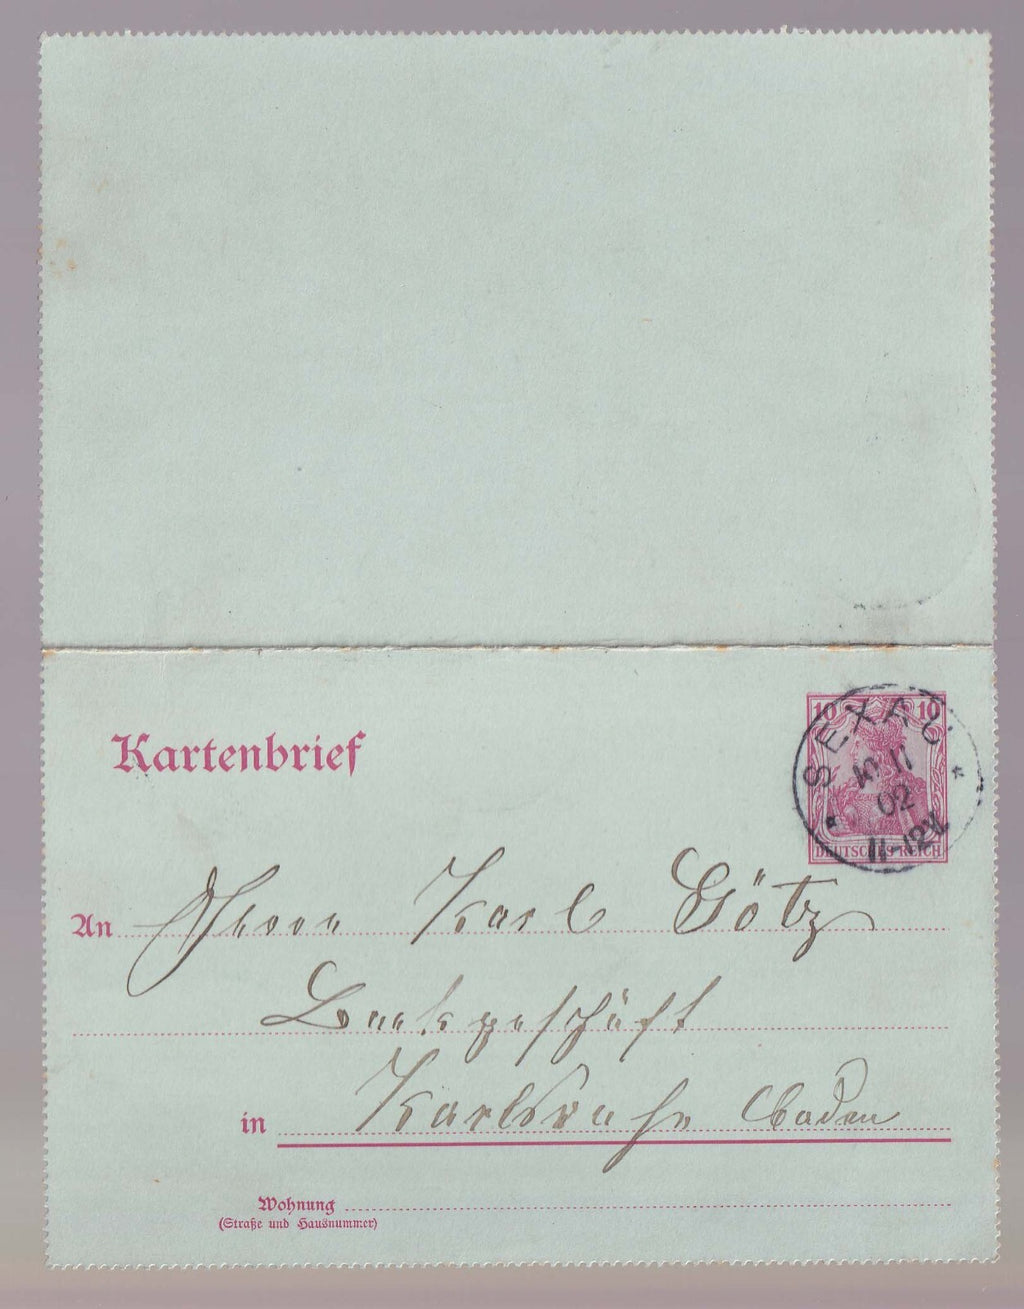 Kartenbrief
10 10
DEUTSCHES REICH
SEXAU
11
02
11-12V
An Herrn Karl Götz
Bankgeschäft
in Karlsruhe Baden
Wohnung
(Straße und Hausnummer)